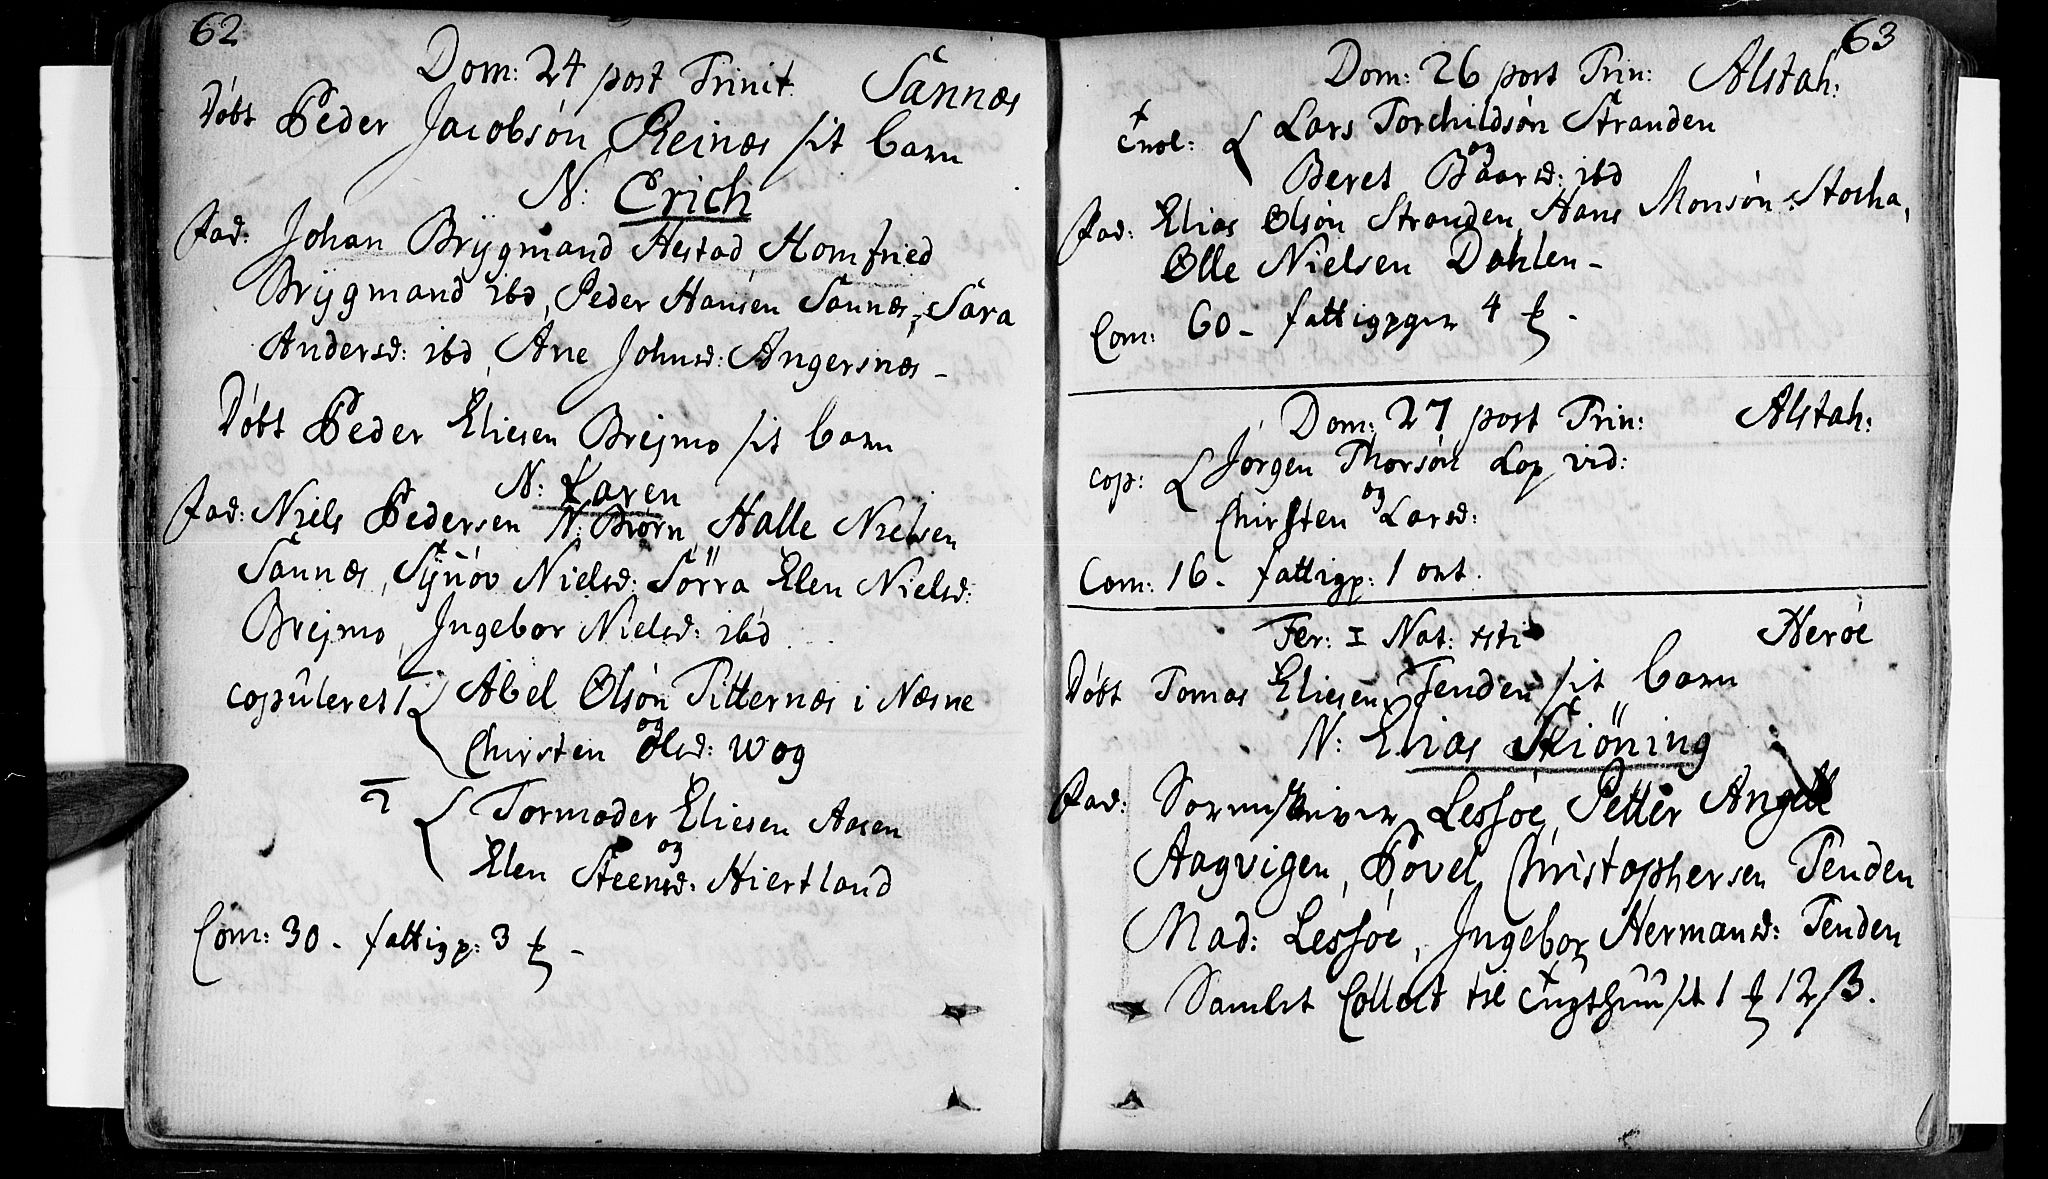 62
Dom: 24 post Trinit. Sannæs
Døbt Peder Jacobsøn Reinæs sit barn
N: Erich
Fad: Johan Brÿgmand Hestad, Homfried
Brÿgmand ibd, Peder Hansen Sannæs, Sara
Andersd: ibd, Ane Johnsd: Angersnæs –
Døbt Peder Eliesen Brejmo sit barn
N: Karen
Fad: Niels Pedersen N: Biørn, Halle Nielsen
Sannæs, Sÿnøv Nielsd: Sörra Elen Nielsd:
Brejmo, Ingebor Nielsd: ibd
copuleret 1 Abel Olsøn Titternæs i Næsne
og
Chirsten Olsd: Wog
2 Tormoder Eliesen Aasen
og
Elen Steensd: Hiertland
Com: 30 – fattigp: 3 –
63
Dom: 26 post Trin: Alstah:
Lars Torchildsøn Stranden
og
Beret Baarsd: ibd
Fad: Elias Olsøn Stranden, Hans Monsøn Stocha,
Olle Nielsen Dahlen –
Com: 60 – fattigpger 4 –
Dom: 27 post Trin: Alstah:
cop: Jørgen Thorsøn Lop, vid:
og
Chirsten Larsd:
Com: 16 – fattigp: 1 ort.
Fer: I Nat: Herøe
Døbt Tomas Eliesen Tenden sit barn
N: Elias Skiöning
Fad: Sorenskriver Lessøe, Petter Angell
Aagvigen, Povel Christophersen Tenden
Mad: Lessøe, Ingebor Hermansd: Tenden
Samlet Collect til Tugthuuset 1 12 β.